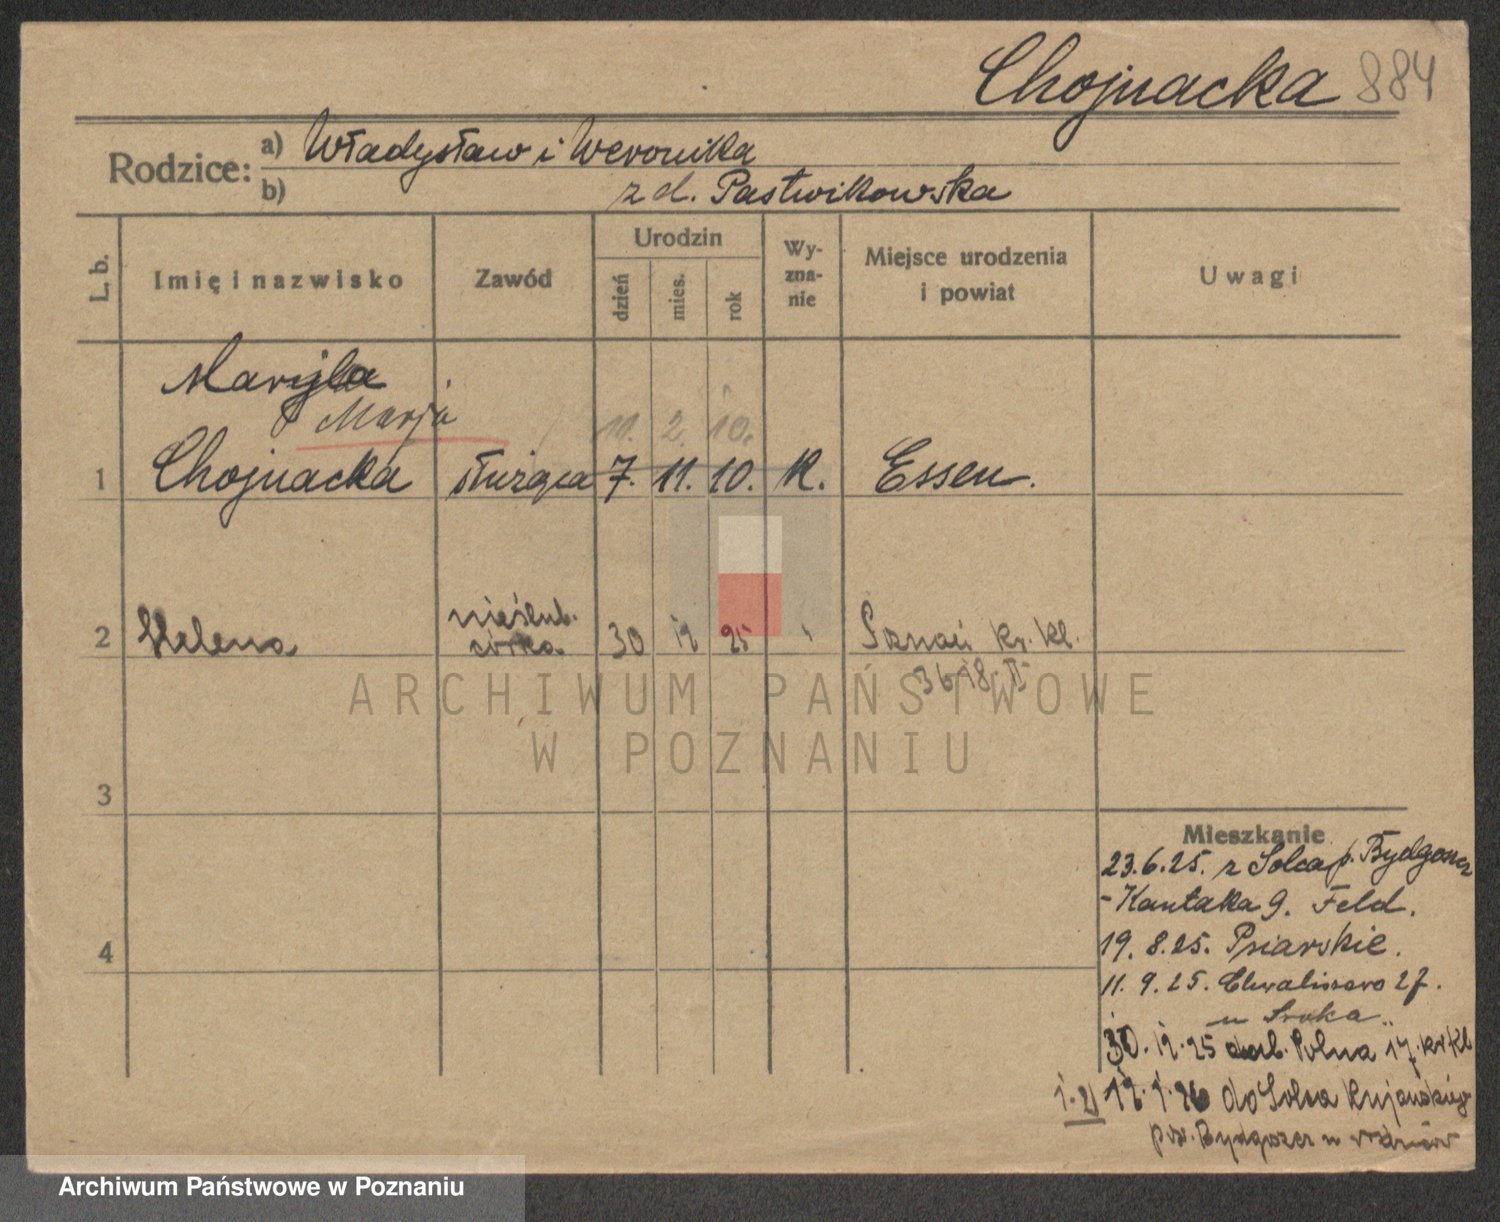 Chojnacka 884
Rodzice:
a) Władysław i Weronika
b) z d. Pastwikowska
L. b.
Imię i nazwisko
Zawód
Urodzin
dzień
mies.
rok
Wy-
zna-
nie
Miejsce urodzenia
i powiat
Uwagi
Maryla
Marja
11. 2. 10.
1 Chojnacka służąca 7. 11. 10. K. Essen.
nieślub.
2 Helena córka 30 12 25 Poznań kr. kl.
3618 II
3
4
Mieszkanie
23.6.25. z Solca p. Bydgoszcz
- Kantaka 9. Feld.
19. 8. 25. Psiarskie.
11. 9. 25. Chwaliszewo 27.
u Sroka
30. 12. 25 Polna 17. kr kl
12. 1. 26 do Solca Kujawskiego
pow. Bydgoszcz
ARCHIWUM PAŃSTWOWE
W POZNANIU
Archiwum Państwowe w Poznaniu